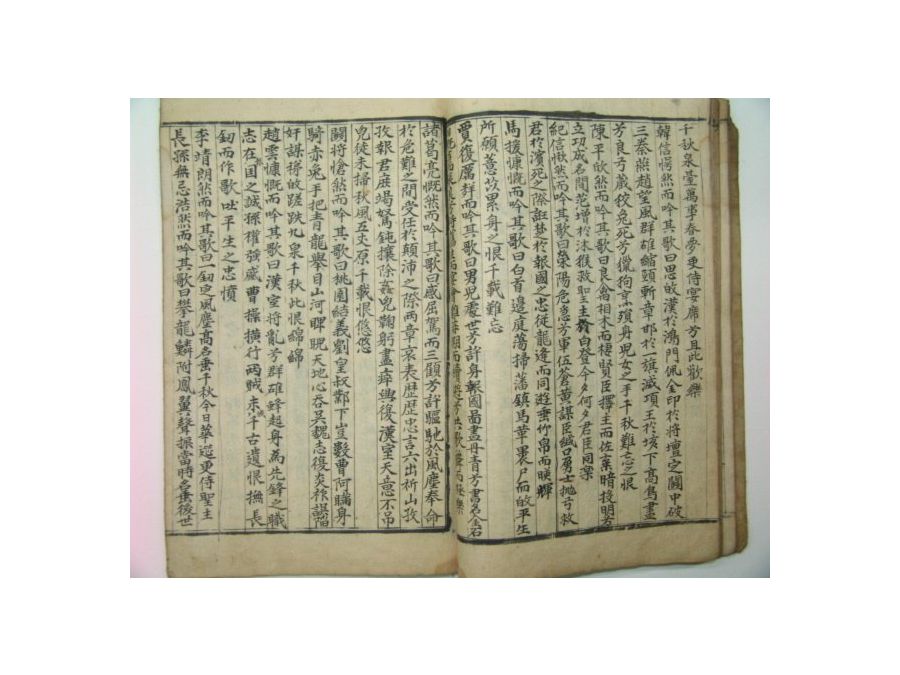 千秋泉臺萬事春夢更侍宴席兮且此歡樂
韓信愕然而吟其歌曰思故漢於鴻門佩金印於將壇定關中破
三秦燕趙望風群雄縮頸斬章邯於一旗滅項王於垓下高鳥盡
兮良弓藏狡兔死兮獵狗烹殞身兒女之手千秋難忘之恨
陳平欣然而吟其歌曰良禽相木而棲賢臣擇主而佐棄暗投明兮
立功成名間范增於沐猴救聖主於白登今夕何夕君臣同樂
紀信愀然而吟其歌曰滎陽危急兮軍伍蒼黃謀臣緘口勇士抛弓救
君於濱死之際誑楚於報國之忠從龍逄而同遊垂竹帛而暎輝
馬援慷慨而吟其歌曰白首邊庭蕩掃藩鎮馬革裹尸而故平生
所願薏苡累身之恨千載難忘
賈復厲聲而吟其歌曰男兒處世兮許身報國啚畫丹青兮書名金石
諸葛亮慨然而吟其歌曰感屈駕而三顧兮許驅馳於風塵奉命
於危難之間受任於顛沛之際兩章哀表歷歷忠言六出祈山攻
攻報君庶竭駑鈍攘除姦兇鞠躬盡瘁興復漢室天意不吊
兇徒未掃秋風五丈原千載恨悠悠
關將愴然而吟其歌曰桃園結義劉皇叔鄴下豈數曹阿瞞身
騎赤兔手把青龍擧目山河睥睨天地心吞吳魏志復炎祚誤陷
奸謀將故蹉跌九泉千秋此恨綿綿
趙雲慷慨而吟其歌曰漢室將亂兮群雄蜂起身為先鋒之職
志在匡國之誠孫權強盛曹操橫行兩賊未滅千古遺恨撫長
釰而作歌吐平生之忠憤
李靖朗然而吟其歌曰一釰定風塵高名垂千秋今日華筵更侍聖主
長孫無忌浩然而吟其歌曰攀龍鱗附鳳翼聲振當時名垂後世